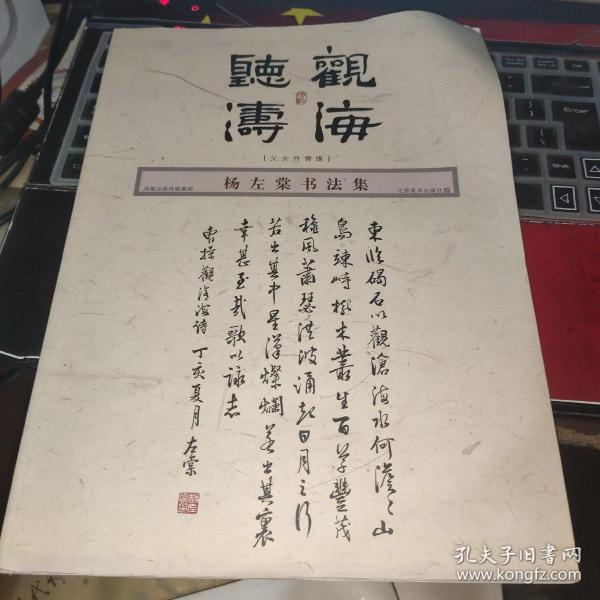 觀海
聽濤
[父女丹青缘]
凤凰出版传媒集团 杨左棠书法集 江苏美术出版社
東臨碣石以觀滄海水何澹々山
島竦峙樹木叢生百草豐茂
穐風蕭瑟洪波涌起日月之行
若出其中星漢燦爛若出其裏
幸甚至哉歌以詠志
曹操觀滄海詩 丁亥夏月 左棠
孔夫子旧书网
www.kongfz.com